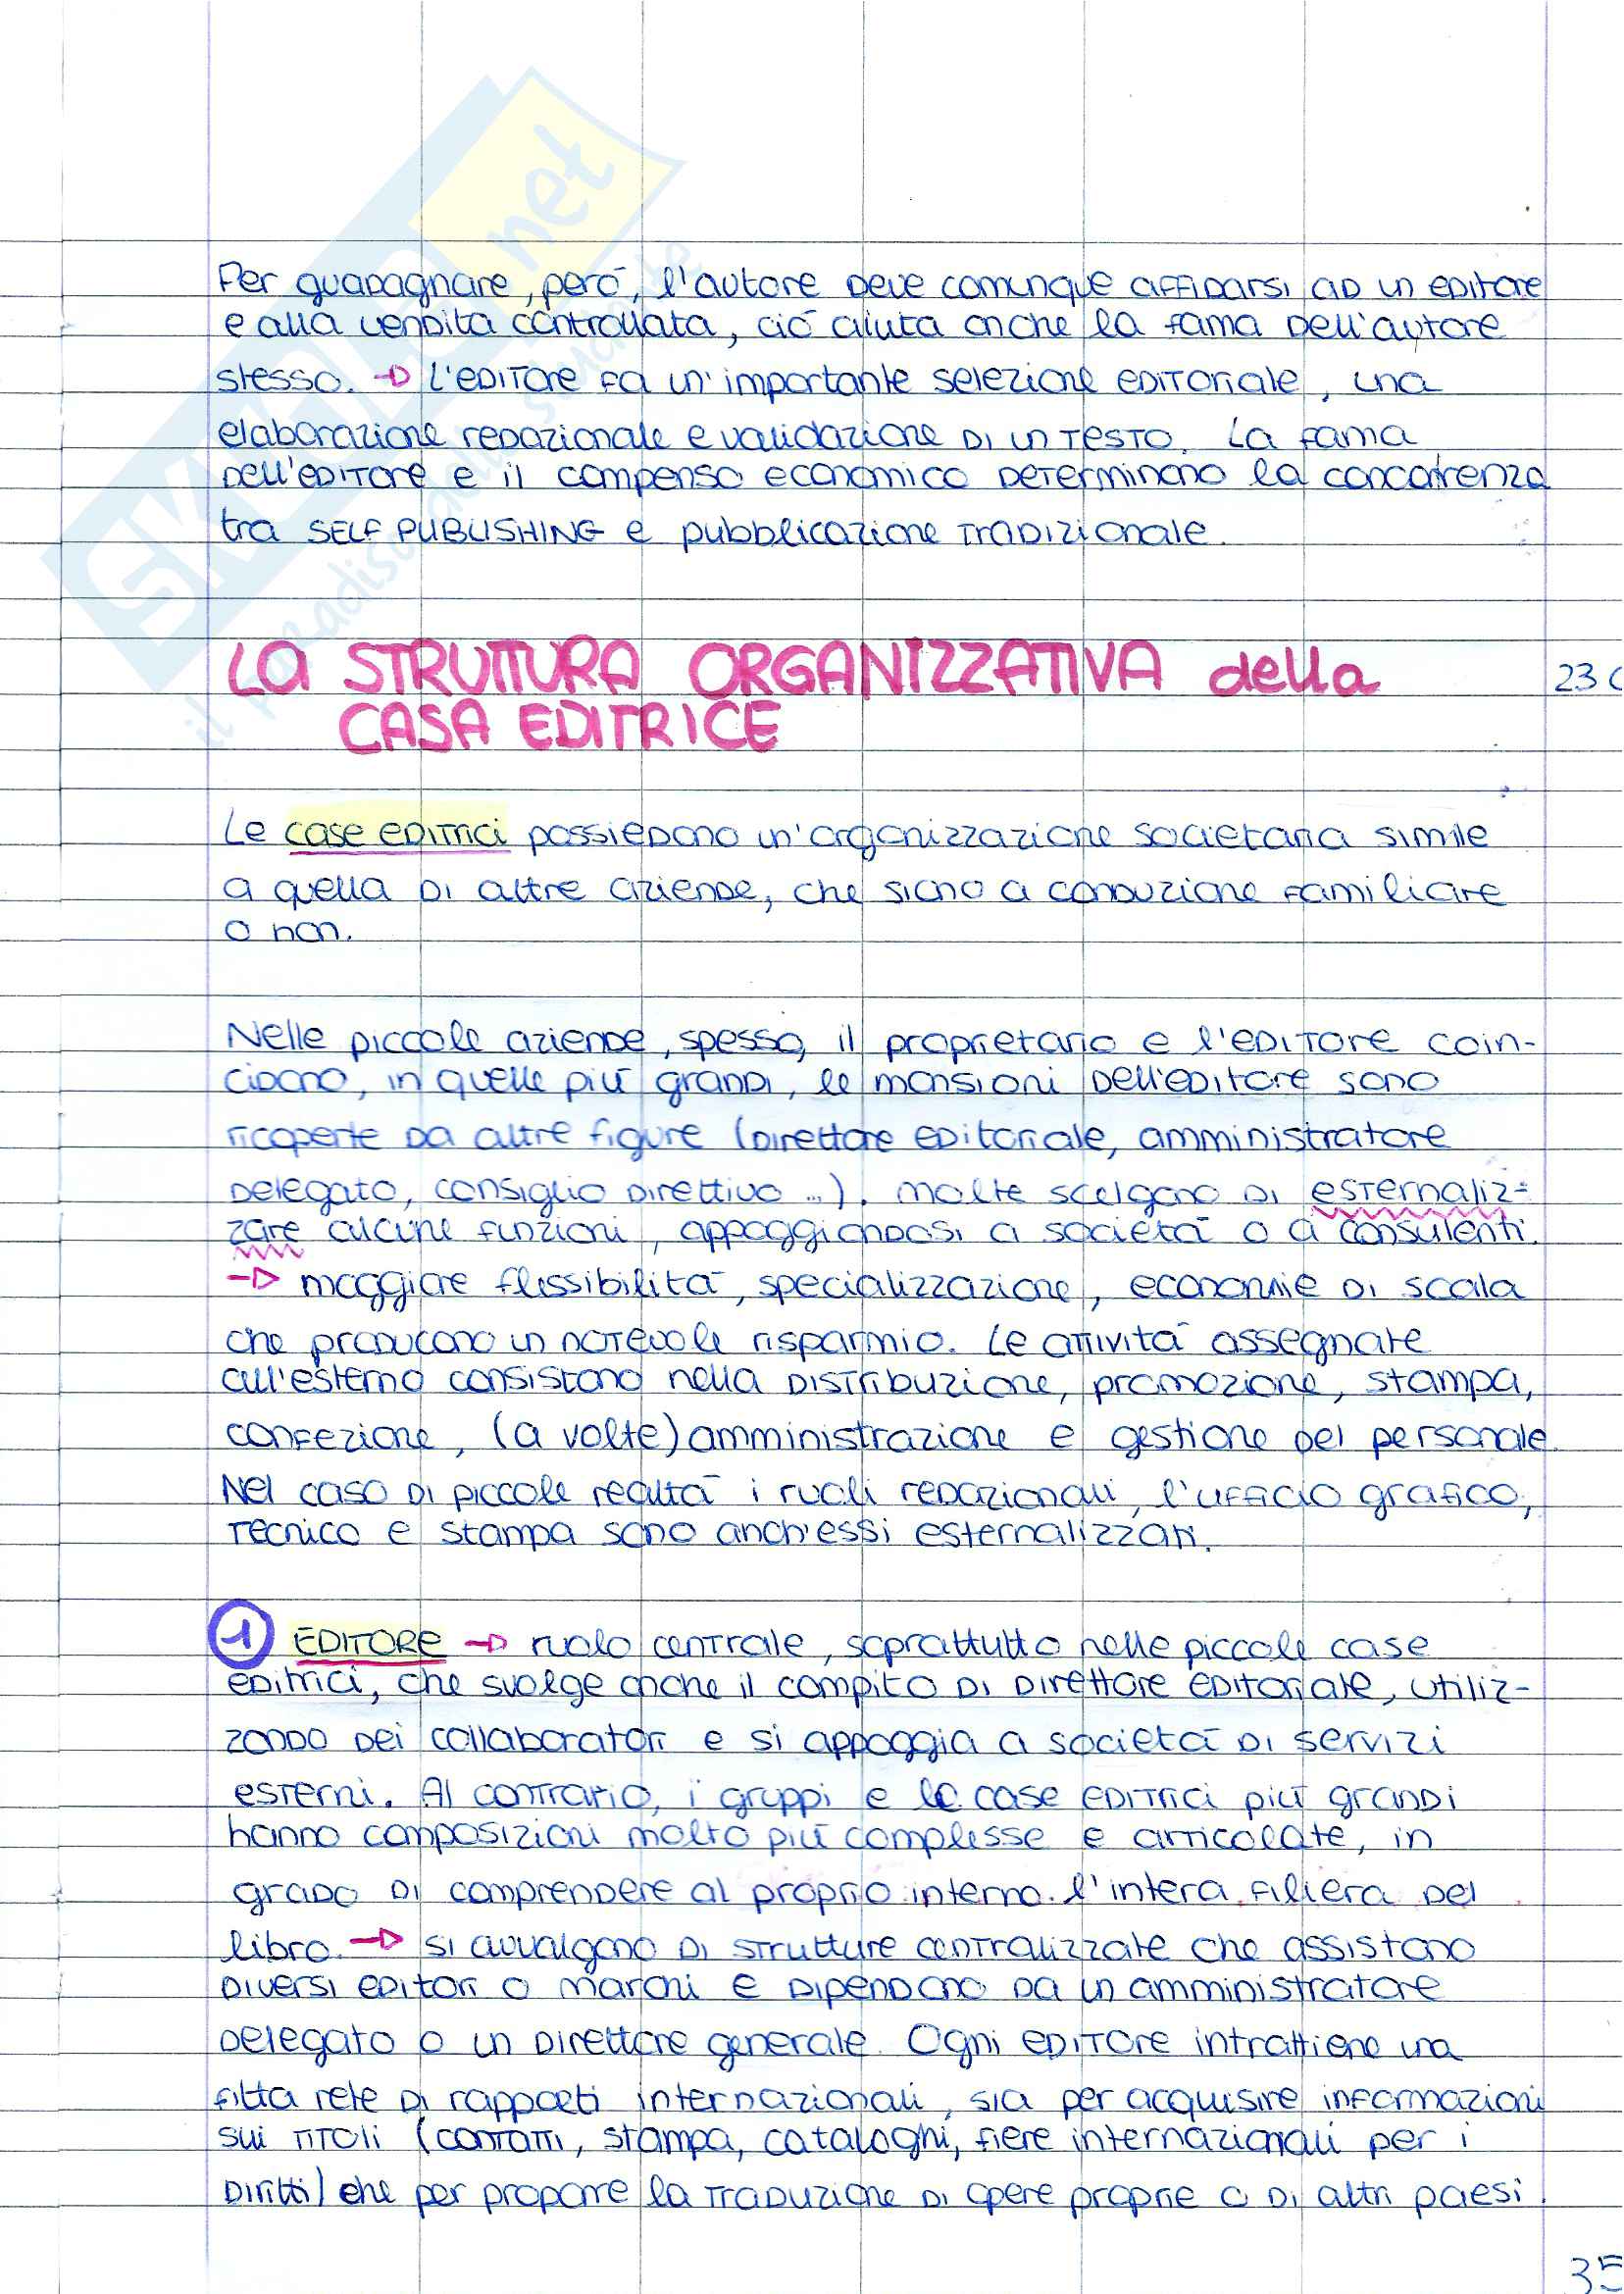 Per guadagnare, però, l'autore deve comunque affidarsi ad un editore
e alla vendita controllata, ciò aiuta anche la fama dell'autore
stesso. → L'editore fa un'importante selezione editoriale, una
elaborazione redazionale e validazione di un testo. La fama
dell'editore e il compenso economico determinano la concorrenza
tra SELF PUBLISHING e pubblicazione tradizionale.
LA STRUTTURA ORGANIZZATIVA della
CASA EDITRICE
23
Le case editrici possiedono un'organizzazione societaria simile
a quella di altre aziende, che siano a conduzione familiare
o non.
Nelle piccole aziende, spesso, il proprietario e l'editore coin-
cidono, in quelle più grandi, le mansioni dell'editore sono
ricoperte da altre figure (direttore editoriale, amministratore
delegato, consiglio direttivo ...). Molte scelgono di esternaliz-
zare alcune funzioni, appoggiandosi a società o a consulenti.
→ maggiore flessibilità, specializzazione, economie di scala
che producono un notevole risparmio. Le attività assegnate
all'esterno consistono nella distribuzione, promozione, stampa,
confezione, (a volte) amministrazione e gestione del personale.
Nel caso di piccole realtà i ruoli redazionali, l'ufficio grafico,
tecnico e stampa sono anch'essi esternalizzati.
1 EDITORE → ruolo centrale, soprattutto nelle piccole case
editrici, che svolge anche il compito di direttore editoriale, utiliz-
zando dei collaboratori e si appoggia a società di servizi
esterni. Al contrario, i gruppi e le case editrici più grandi
hanno composizioni molto più complesse e articolate, in
grado di comprendere al proprio interno l'intera filiera del
libro. → si avvalgono di strutture centralizzate che assistono
diversi editori o marchi e dipendono da un amministratore
delegato o un direttore generale. Ogni editore intrattiene una
fitta rete di rapporti internazionali, sia per acquisire informazioni
sui titoli (contatti, stampa, cataloghi, fiere internazionali per i
diritti) che per proporre la traduzione di opere proprie o di altri paesi.
35